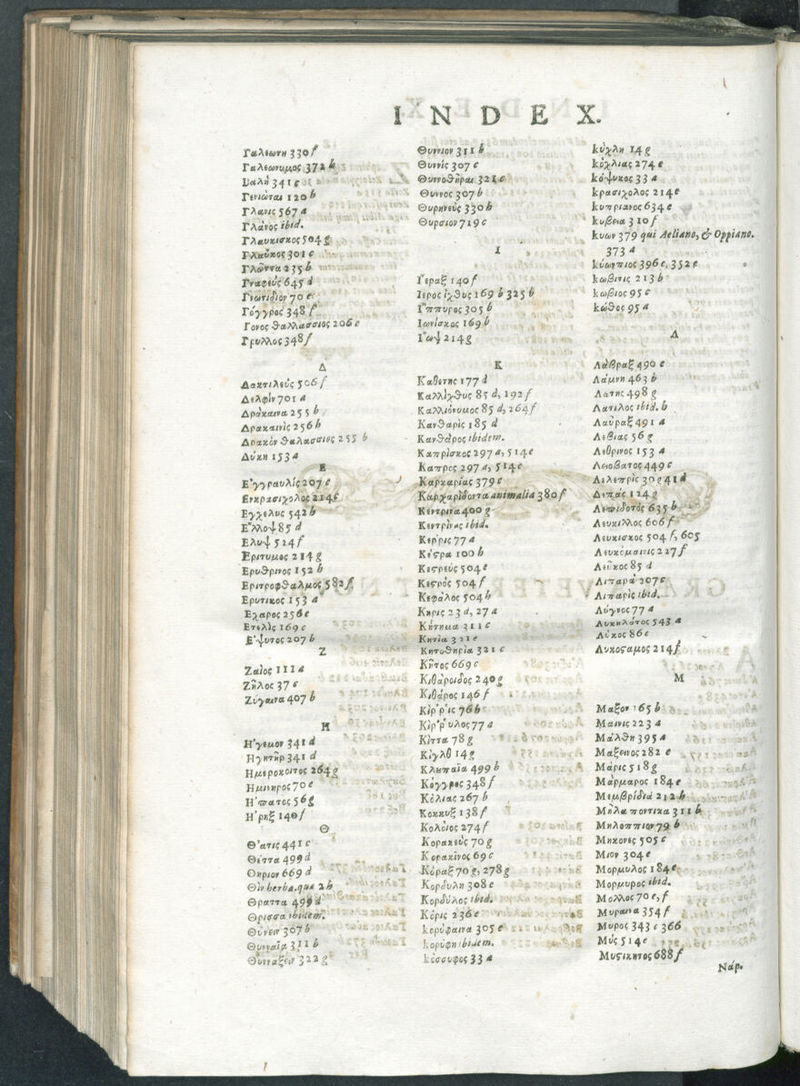 INDEX.
Γαλεωτη 330 f
Γαλεωνυμος 372 b
Γαλῆ 341 c
Γενιώται 120 b
Γλανις 567 a
Γλάνος ibid.
Γλαυκισκος 504 g
Γλαῦκος 301 c
Γλῶττα 235 b
Γναφεύς 645 d
Γόγγρος 348 f
Γονος θαλλασσιος 206 c
Γρυλλος 348 f
Δ
Δακτιλεύς 506 f
Δελφίν 701 a
Δράκαινα 255 b
Δρακαινὶς 256 b
Δρακὸν θαλασσιος 255 b
Δύκη 153 a
Ε
Ἐγγραυλίς 207 c
Ενκρασιχολος 214 f
Εγχελυς 542 b
Ἔλλοψ 85 d
Ελυψ 524 f
Εριτυμος 214 g
Ερυθρινος 152 b
Εριτροφθαλμος 582 f
Ερυτικος 153 a
Εχαρος 256 e
Ετελὶς 169 c
Ἑψυτος 207 b
Ζ
Ζαῖος 111 a
Ζῆλος 37 e
Ζύγαινα 407 b
Η
Ἡγεμον 341 d
Ἡγητὴρ 341 d
Ημεροκοιτος 264 g
Ημινηρος 70 e
Ἥπατος 56 g
Ἥρηξ 140 f
Θ
Θʹατις 441 c
Θέττα 499 d
Θηριον 669 d
Θὶν herba, quæ 2 b
Θραττα 499 d
Θρισσα ibidem.
Θύνειν 307 b
Θυνναῖα 311 b
Θύνναξειν 322 g
Θυννιον 311 b
Θυννίς 307 c
Θυννοθῆραι 321 c
Θυννος 307 b
Θυρηνεύς 330 b
Θυρσιον 719 c
Ι
Γεραξ 140 f
Ιερος ἰχθυς 169 b 325 b
Γππυρος 305 b
Ιωνίσκος 169 b
Γωψ 214 g
Κ
Καθετης 177 d
Καλλίχθυς 85 d, 192 f
Καλλιόνυμος 85 d, 264 f
Κανθαρὶς 185 d
Κανθάρος ibidem.
Καπρίσκος 297 a, 514 e
Καπρος 297 a, 514 e
Καρκαρίας 379 c
Καρχαρίδοντα animalia 380 f
Κεντρινα 400 g
Κεντρίνης ibid.
Κεῤρις 77 a
Κέστρα 100 b
Κεστρεύς 504 e
Κεστρός 504 f
Κεφάλος 504 b
Κηρις 23 d, 27 a
Κήτημα 311 c
Κητία 311 e
Κητοθηρία 321 c
Κῆτος 669 c
Κιθάροιδος 240 g
Κιθάρος 146 f
Κίῤῥις 76 b
Κίῤῥυλος 77 a
Κίττα 78 g
Κίγλθ 14 g
Κληπαῖα 499 b
Κόγγρος 348 f
Κόλιας 267 b
Κοκκυξ 138 f
Κολόιος 274 f
Κορακεύς 70 g
Κορακίνος 69 c
Κόραξ 70 g, 278 g
Κορδυλη 308 e
Κορδύλος ibid.
Κόρις 236 e
κορύφαινα 305 e
κορύφη ibidem.
κόσσυφος 33 a
κύχλη 14 g
κόχλιας 274 e
κόψυκος 33 a
κρασιχολος 214 e
κυπριανος 634 e
κυβεια 310 f
κυων 379 qui Aeliano, & Oppiano.
373 a
κύωπιος 396 c, 352 e
κωβιτις 213 b
κωβιος 95 c
κώθος 95 a
Λ
Λάβραξ 490 e
Λάμνη 463 b
Λατης 498 g
Λατιλος ibid. b
Λαύραξ 491 a
Λεβιας 56 g
Λεθρινος 153 a
Λειοβατος 449 c
Λελεπρὶς 30 g 41 d
Λεπάς 124 g
Λεπιδοτός 635 b
Λευκιλλος 606 f
Λευκισκος 504 f, 605
Λευκομαινις 227 f
Λεῦκος 85 d
Λιπαρά 207 c
Λιπαρὶς ibid.
Λύγνος 77 a
Λυκηλότος 543 a
Λύκος 86 e
Λυκοσταμος 214 f
Μ
Μαξον 165 b
Μαινις 223 a
Μάλθη 395 a
Μαξεινος 282 e
Μάρις 518 g
Μάρμαρος 184 e
Μεμβρίδιά 212 b
Μῆλα ποντικα 311 b
Μηλοππιον 79 b
Μηκονες 505 c
Μιον 304 e
Μορμυλος 184 e
Μορμυρος ibid.
Μολλος 70 e, f
Μυραινα 354 f
Μυρος 343 c 366
Μύς 514 e
Μυστικητος 688 f
Νάρ.